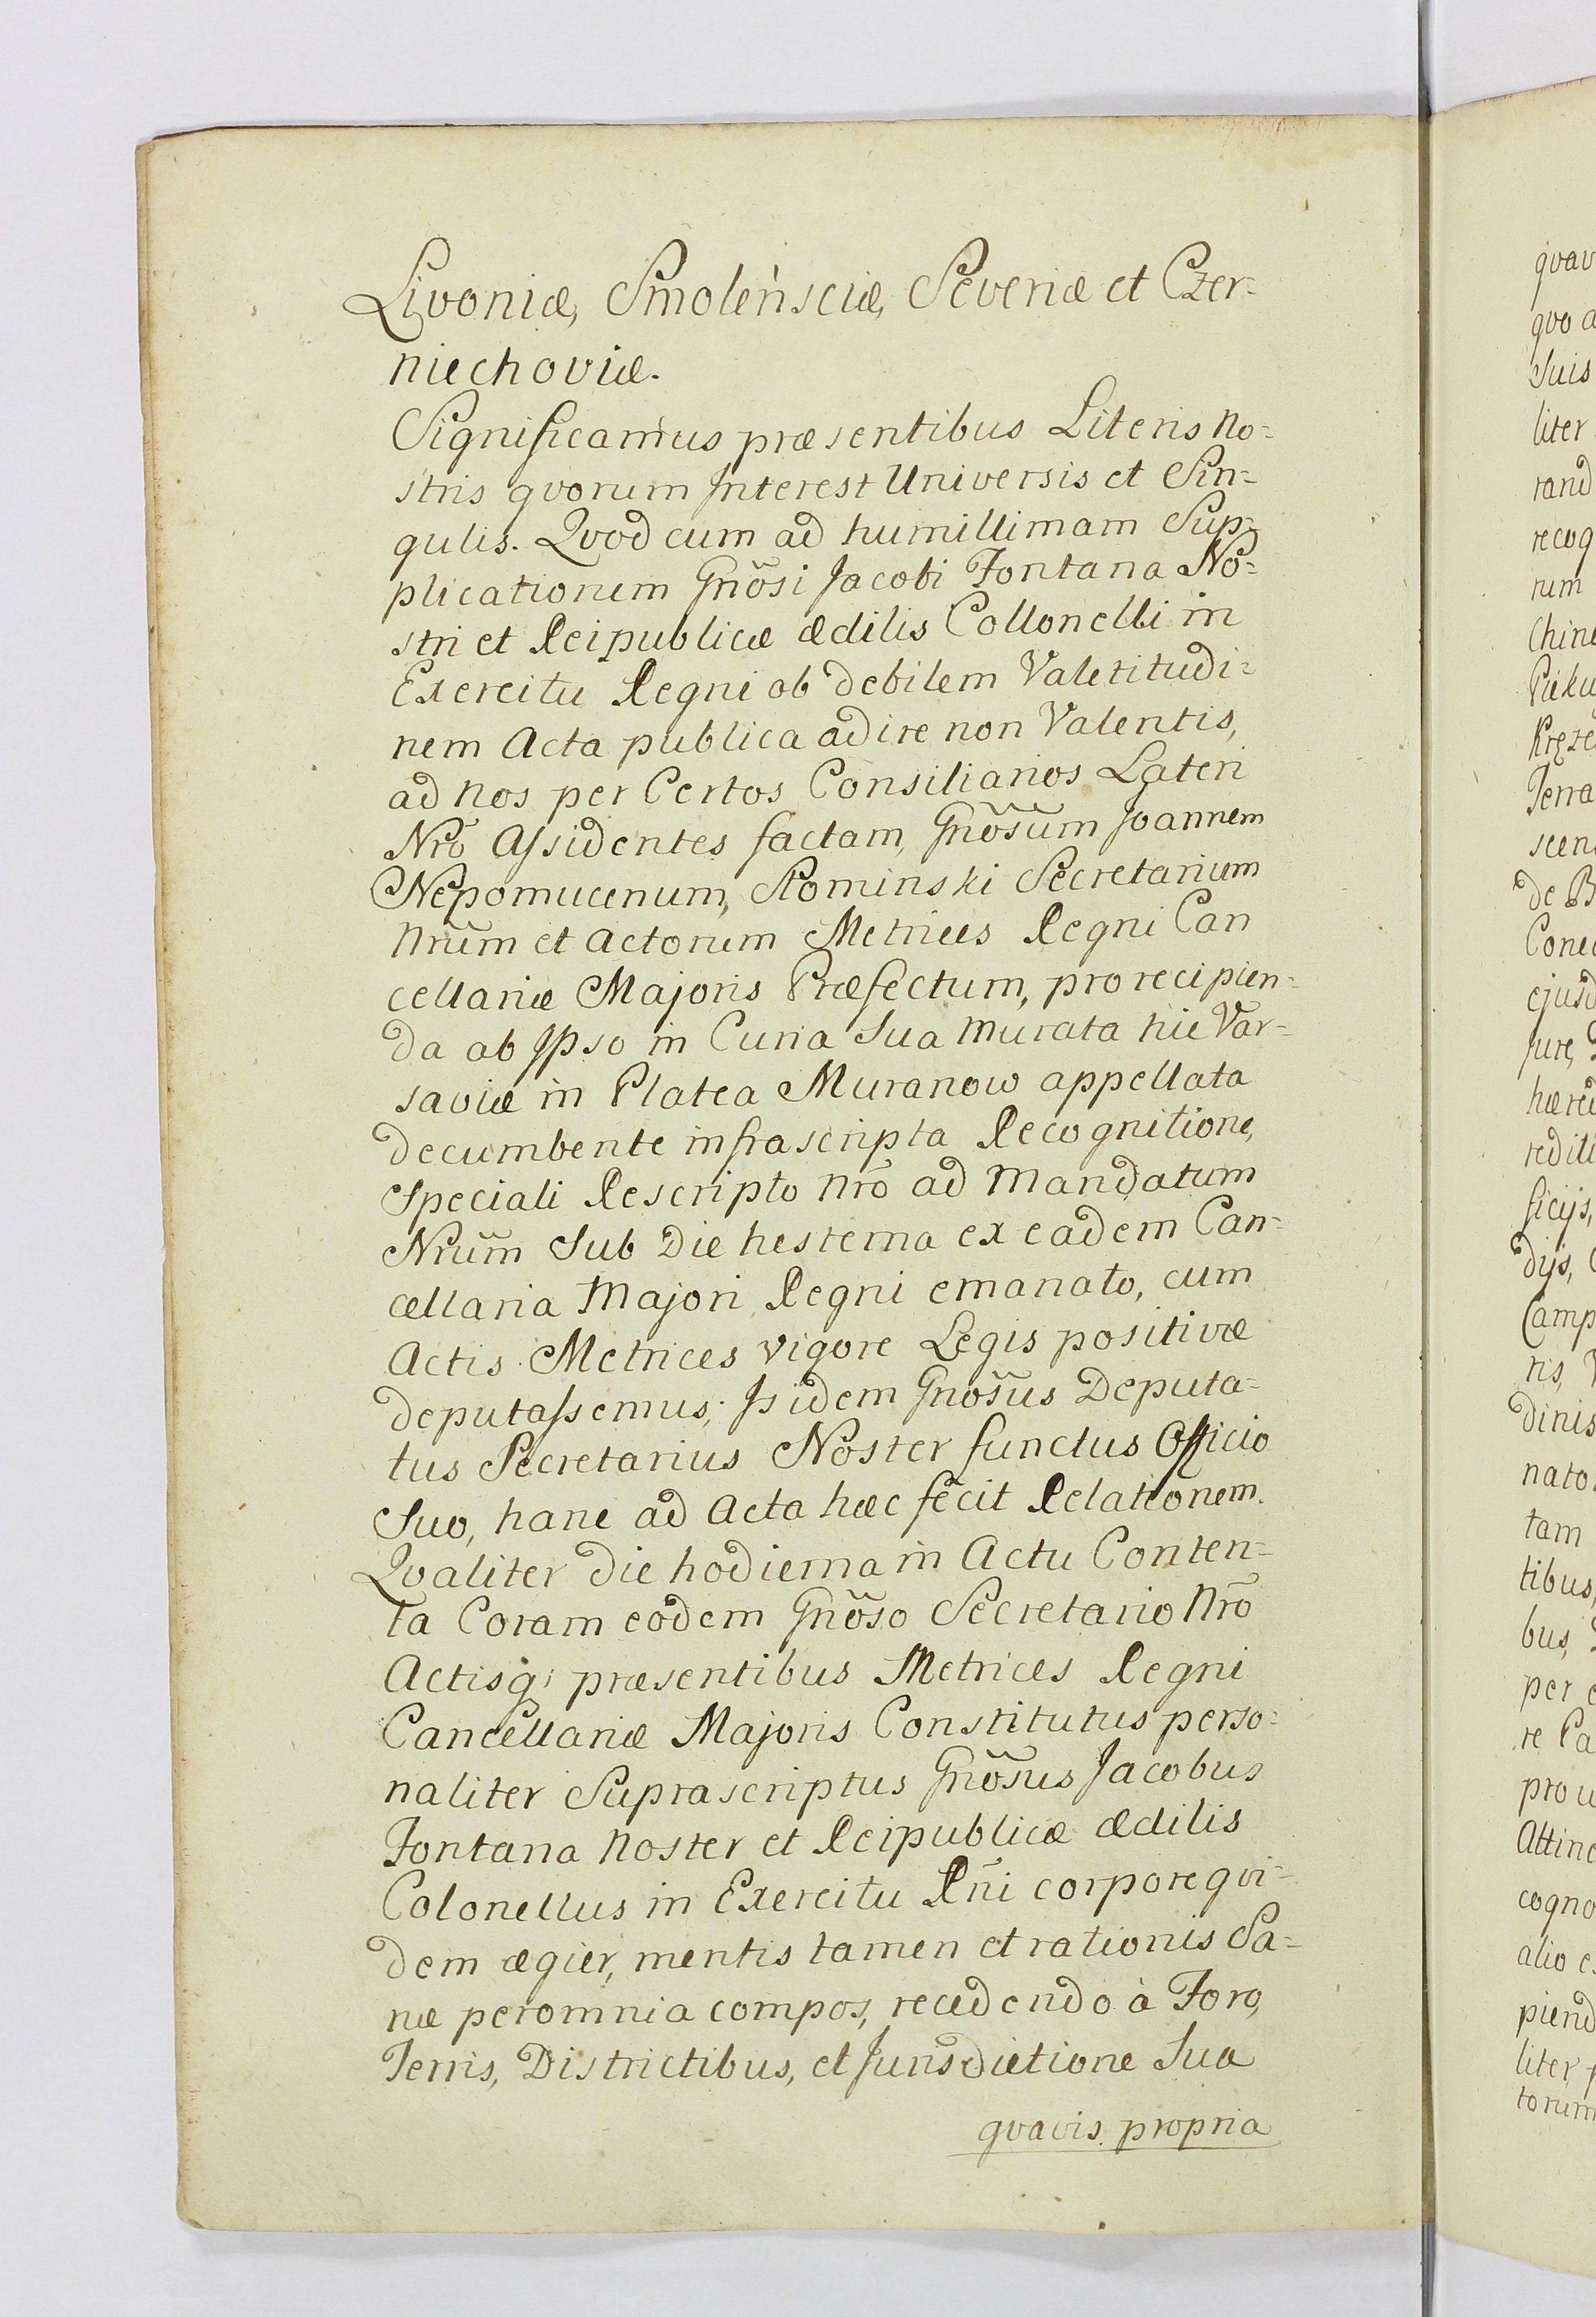 Livoniæ, Smoleńsciæ, Severiæ et Czer=
niechoviæ.
Significamus præsentibus Literis No=
stris qvorum Interest Universis et Sin=
gulis. Qvod cum ad humillimam Sup=
plicationem Gnõsi Jacobi Fontana No=
stri et Reipublicæ ædilis Collonelli in
Exercitu Regni ob debilem Valetitudi=
nem Acta publica adire non Valentis,
ad Nos per Certos Consiliarios Lateri
Nrõ Assidentes factam, Gnõsũm Joannem
Nepomucenum, Słominski Secretarium
Nrũm et Actorum Metrices Regni Can
cellariæ Majoris Præfectum, pro recipien=
da ab Ipso in Curia Sua Murata hic Var=
saviæ in Platea Muranow appellata
decumbente infrascripta Recognitione,
Speciali Rescripto Nrõ ad Mandatum
Nrũm Sub Die hesterna ex eadem Can=
cellaria Majori Regni emanato, cum
Actis Metrices vigore Legis positivæ
deputassemus; Isidem Gnõsus Deputa=
tus Secretarius Noster functus Officio
Suo, hanc ad Acta hæc fecit Relationem.
Qvaliter Die hodierna in Actu Conten=
ta Coram eodem Gnõso Secretario Nrõ
Actisq; præsentibus Metrices Regni
Cancellariæ Majoris Constitutus perso=
naliter Suprascriptus Gnõsus Jacobus
Fontana Noster et Reipublicæ ædilis
Colonellus in Exercitu Rñi corpore qvi=
dem ægier, mentis tamen et rationis Sa=
næ peromnia compos, recedendo à Foro,
Terris, Districtibus, et Jurisdictione Sua
qvavis propria
qvav
qvo a
Suis
liter
rand
recog
rum
Chine
Pieku
Terra
scen
de B
ejusd
Jure,
hæred
redit
ficijs,
dijs,
Camp
ris,
dinis
nato
tam
tibus,
bus,
per
re Pa
pro u
Attine
cogno
alio e
piend
liter
torum